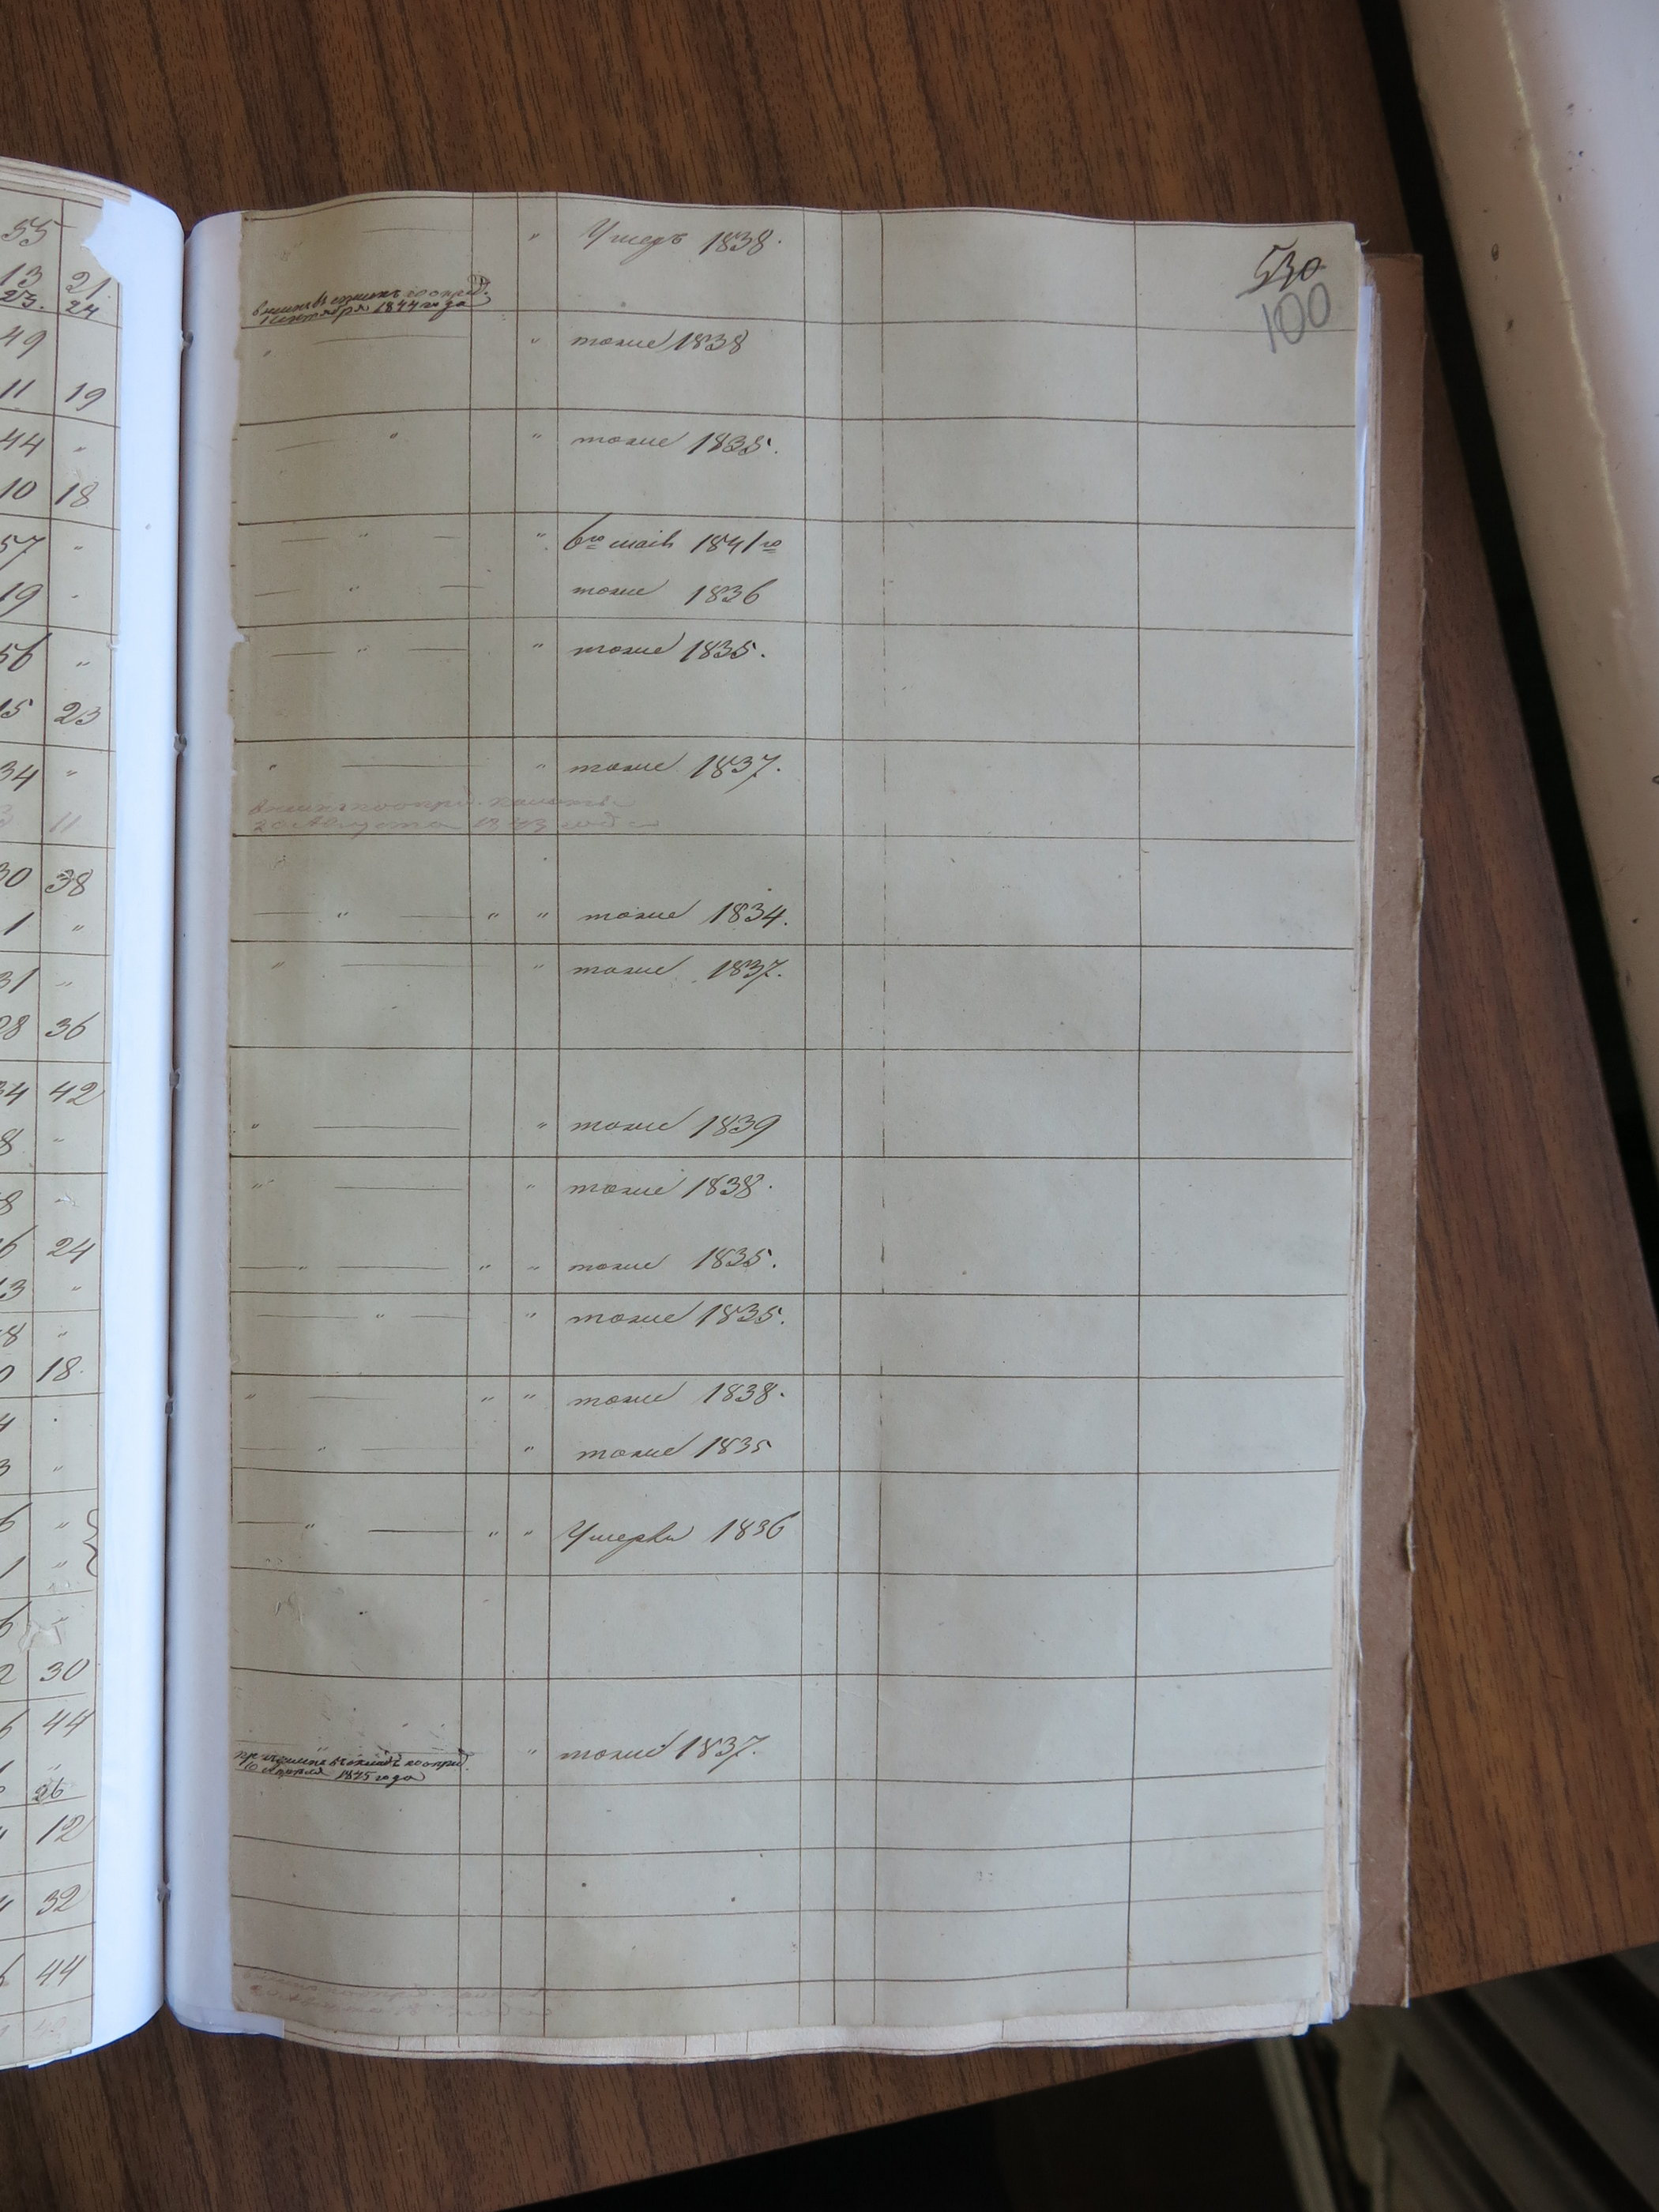 55
13 21
23. 24
49
11 19
44 "
10 18
57 "
19 "
56 "
15 23
34 "
11
30 38
1 "
31 "
28 36
34 42
8 "
8
6 24
13 "
8 "
0 18.
4
3 "
6 "
1 "
6
2 30
6 44
"
26
12
32
6 44
" Умеръ 1838.
530
100
1844 года
" " тоже 1838
" " тоже 1835.
" " 6го маія 1841го
" тоже 1836
" " тоже 1835.
" " тоже 1837.
20 Августа 1843 года
" " " тоже 1834.
" " тоже 1837.
" " тоже 1839
" " тоже 1838.
" " " тоже 1835.
" " тоже 1835.
" " " тоже 1838.
" " тоже 1835
" " " Умерли 1836
" тоже 1837.
Апреля 1845 года